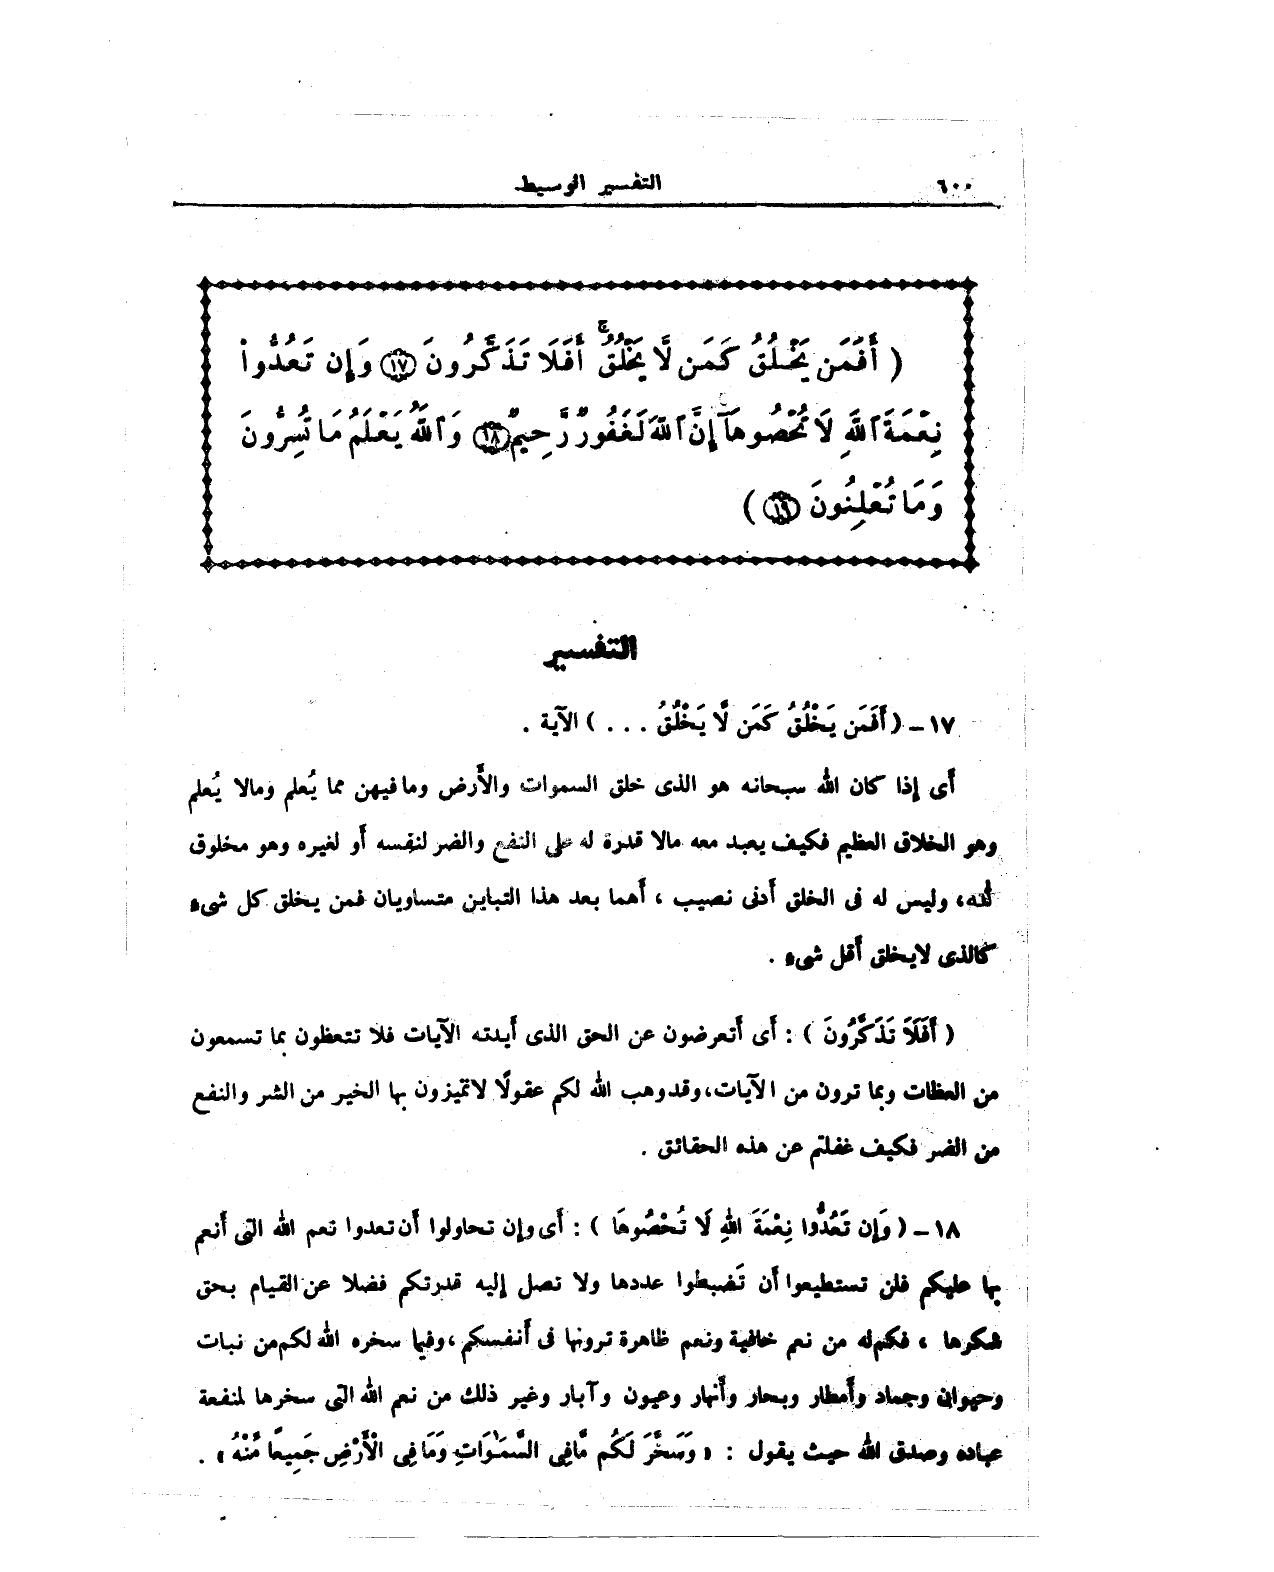 ٦٠٠
التفسير الوسيط
( أَفَمَن يَخْلُقُ كَمَن لَّا يَخْلُقُ ۗ أَفَلَا تَذَكَّرُونَ ١٧ وَإِن تَعُدُّوا۟
نِعْمَةَ ٱللَّهِ لَا تُحْصُوهَآ إِنَّ ٱللَّهَ لَغَفُورٌ رَّحِيمٌ ١٨ وَٱللَّهُ يَعْلَمُ مَا تُسِرُّونَ
وَمَا تُعْلِنُونَ ١٩ )
التفسير
١٧ – ( أَفَمَن يَخْلُقُ كَمَن لَّا يَخْلُقُ . . . ) الآية .
أَى إذا كان الله سبحانه هو الذى خلق السموات والأَرض وما فيهن مما يُعلم ومالا يُعلم
وهو الخلاق العظيم فكيف يعبد معه مالا قدرة له على النفع والضر لنفسه أَو لغيره وهو مخلوق
لله، وليس له فى الخلق أَدنى نصيب ، أَهما بعد هذا التباين متساويان فمن يخلق كل شىء
كالذى لايخلق أَقل شىء .
( أَفَلَا تَذَكَّرُونَ ) : أَى أَتعرضون عن الحق الذى أَيدته الآيات فلا تتعظون بما تسمعون
من العظات وبما ترون من الآيات، وقد وهب الله لكم عقولًا لاتميزون بها الخير من الشر والنفع
من الضر فكيف غفلتم عن هذه الحقائق .
١٨ – ( وَإِن تَعُدُّوا نِعْمَةَ اللهِ لَا تُحْصُوهَا ) : أَى وإن تحاولوا أَن تعدوا نعم الله التى أَنعم
بها عليكم فلن تستطيعوا أَن تَضبطوا عددها ولا تصل إليه قدرتكم فضلا عن القيام بحق
شكرها ، فكم له من نعم خافية ونعم ظاهرة ترونها فى أَنفسكم ، وفيما سخره الله لكم من نبات
وحيوان وجماد وأَمطار وبحار وأَنهار وعيون وآبار وغير ذلك من نعم الله التى سخرها لمنفعة
عباده وصدق الله حيث يقول : « وَسَخَّرَ لَكُم مَّا فِي السَّمَـٰوَاتِ وَمَا فِي الْأَرْضِ جَمِيعًا مِّنْهُ » .